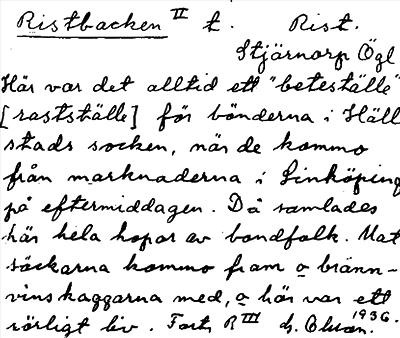 Ristbacken II t. Rist.
Stjärnorp Ögl
Här var det alltid ett "beteställe"
[rastställe] för bönderna i Häll
stads socken, när de kommo
från marknaderna i Linköping
på eftermiddagen. Då samlades
här hela hopar av bondfolk. Mat
säckarna kommo fram o bränn-
vinskaggarna med, o här var ett
rörligt liv. Forts R III 1936.